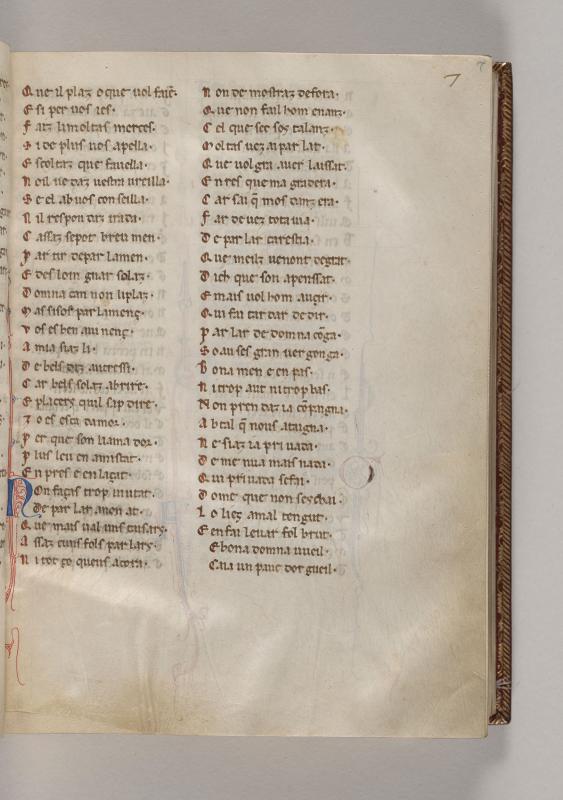 7
Que il plaz o que uol faire.
E si per uos ies.
Faiz la moltas merces.
Si de plus uos apella.
Escoltaz que fauella.
Noil uedaz uestra
Se el ab uos conseilla.
Nil respondaz irada.
Cassaz se pot breu men.
Partir de parlamen.
E de loin gnar solaz.
Domna can non li plaz.
Mas si sos parlamenz.
Vos es ben auinenz.
Amia siaz li.
De bels diz autressi.
Car bels solaz abrire.
E placers quil sap dire.
Zo es esca damor.
Per que son liamador.
Plus leu en amistat.
En pres e en lagut.
Non façaz trop in uitat.
De parlar a non at.
Que mais ual uns
Assaz cuns fols parlars.
Ni tot zo quens acora.
Non de mostraz defora.
Que non fail hom enanz.
Cel que sec sos talanz.
Moltas uez ai parlat.
Que uolgra auer laissat.
En res que magradera.
Car sai q̃ mos danz era.
Far de uez tota uia.
De parlar carestia.
Que meilz uenont degrat.
Dich que son apenssat.
E mais uol hom auzir.
Qui fai tardar de dir.
Parlar de domna
So au ses gran uergongna.
Bona men e en pas.
Ni trop aut ni trop bas.
Non prendaz la cõpagna.
Ab tal q̃ nous ataigna.
Ne siaz la priuada.
De me nua maisnada.
Qui priuada se fai.
Doure que non seschai.
Lo liez a mal tengut.
E en fai leuar fol brut.
E bona domna uueil.
Caia un pauc dorgueil.